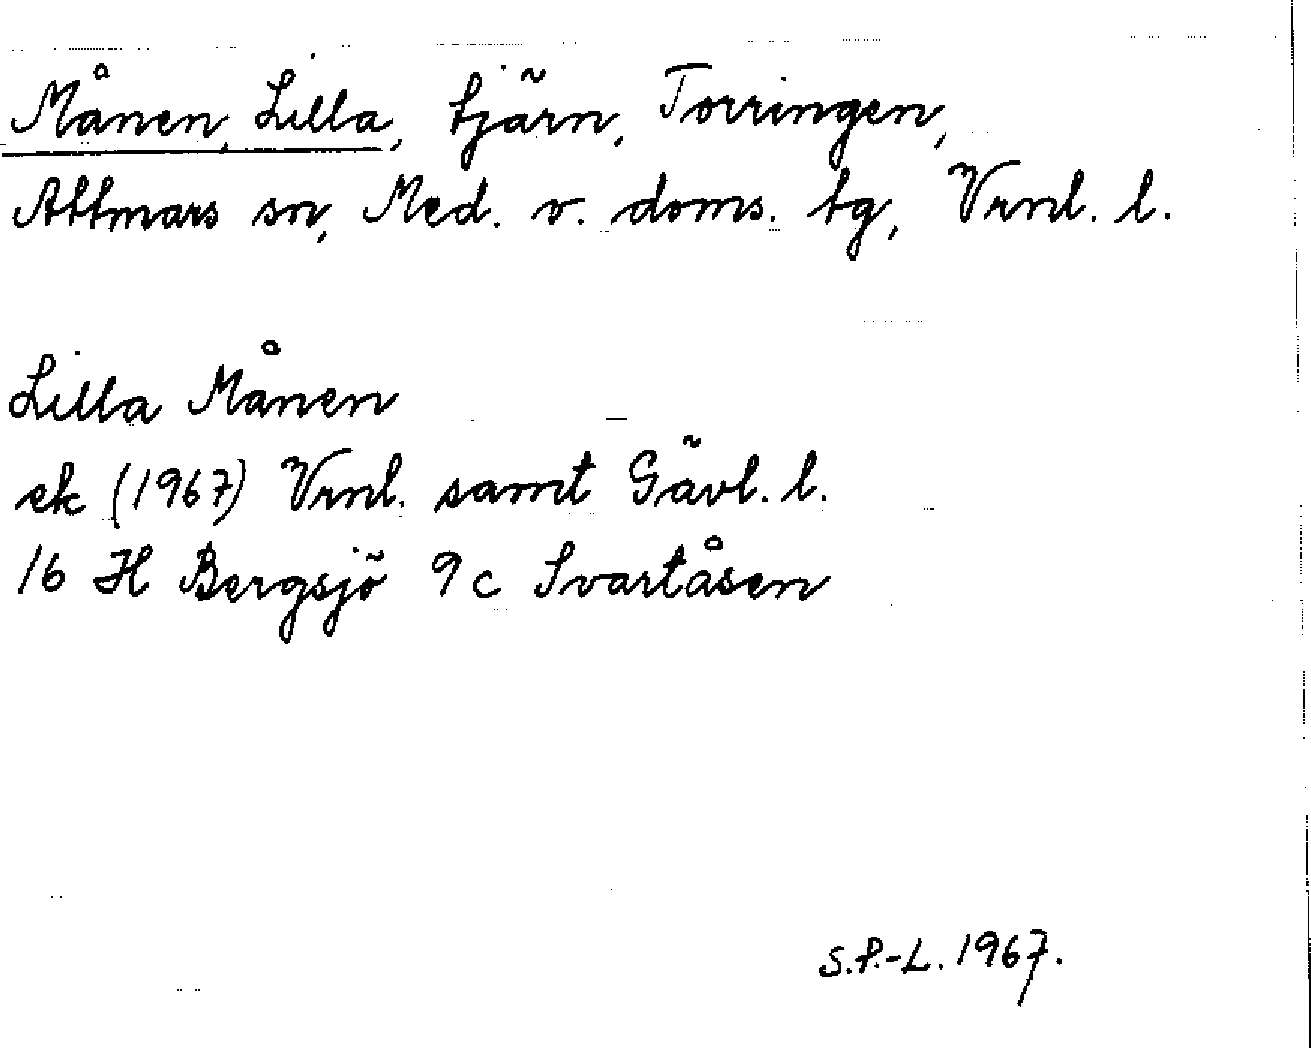 Månen, Lilla, tjärn, Torringen,
Attmars sn, Med. v. doms. tg, Vrnl. l.
Lilla Månen
ek (1967) Vrnl. samt Gävl. l.
16 H Bergsjö 9c Svartåsen
S.P.-L. 1967.